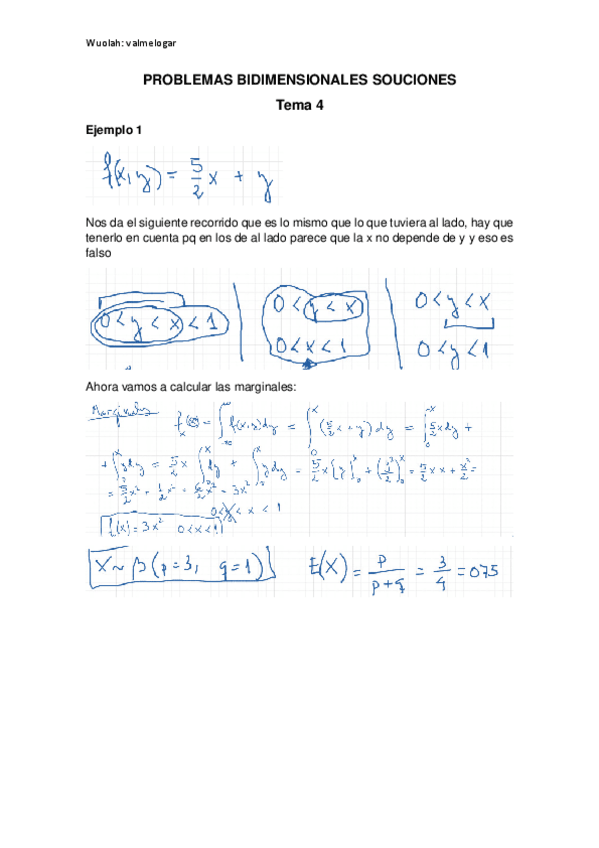 Wuolah: valmelogar
PROBLEMAS BIDIMENSIONALES SOUCIONES
Tema 4
Ejemplo 1
f(x,y) = 5/2 x + y
Nos da el siguiente recorrido que es lo mismo que lo que tuviera al lado, hay que
tenerlo en cuenta pq en los de al lado parece que la x no depende de y y eso es
falso
0<y<x<1 | 0<y<x | 0<y<x
0<x<1 | 0<y<1
Ahora vamos a calcular las marginales:
Marginales f_x(x) = ∫_{-∞}^{∞} f(x,y)dy = ∫_0^x (5/2 x + y) dy = ∫_0^x 5/2 x dy +
+ ∫_0^x y dy = 5/2 x ∫_0^x dy + ∫_0^x y dy = 5/2 x [y]_0^x + (y²/2)_0^x = 5/2 x x + x²/2 =
= 5/2 x² + 1/2 x² = 6/2 x² = 3x²
0<y<x<1
f(x) = 3x² 0<x<1
X ~ β(p=3, q=1) E(X) = p/(p+q) = 3/4 = 075